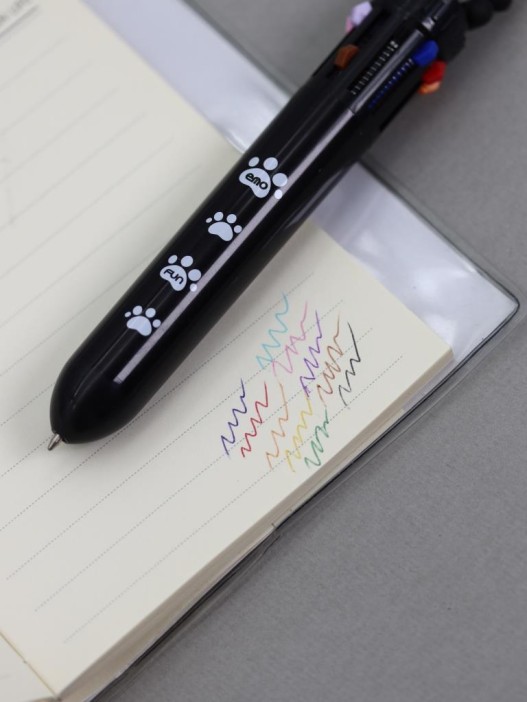 emo
FUN